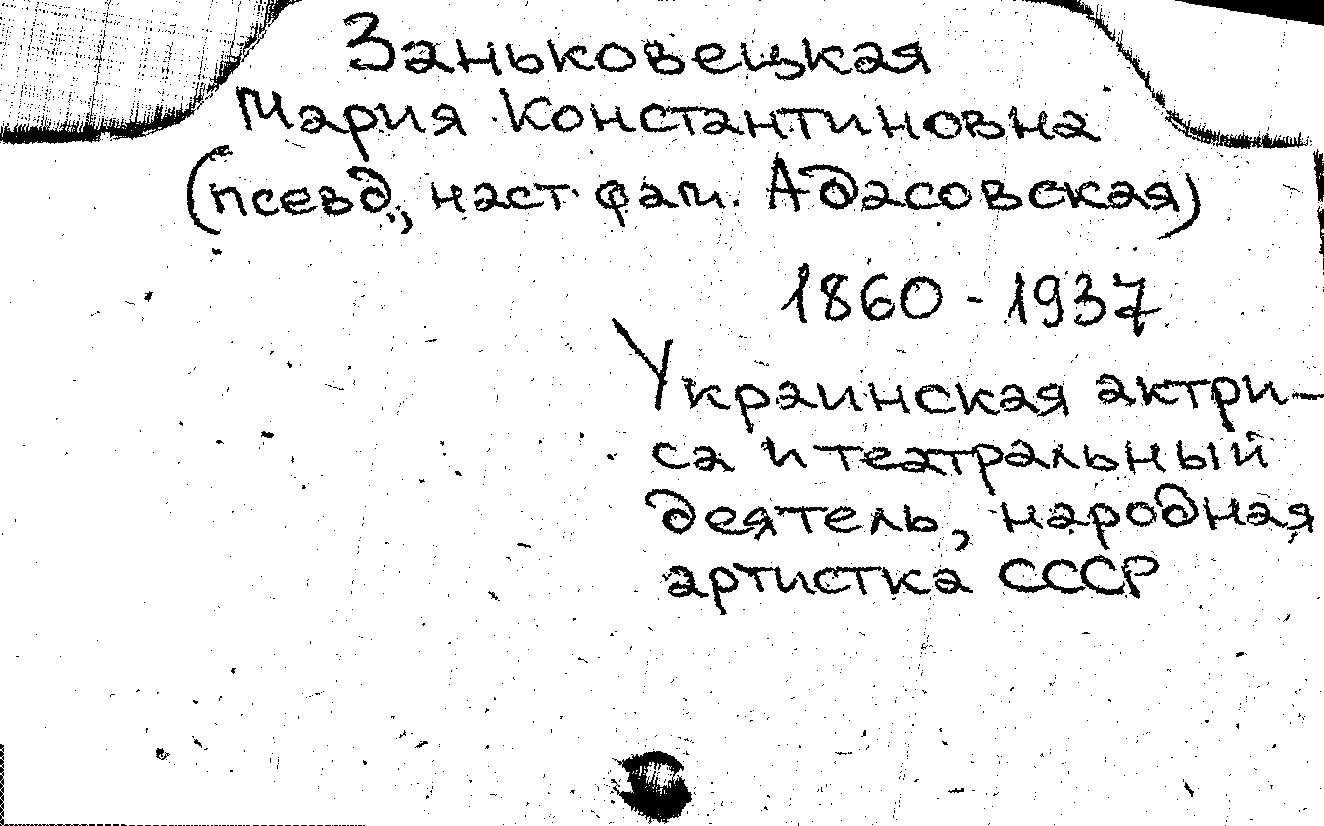 Заньковецкая
Мария Константиновна
(псевд., наст. фам. Адасовская)
1860 - 1937
Украинская актри-
са и театральный
деятель, народная
артистка СССР